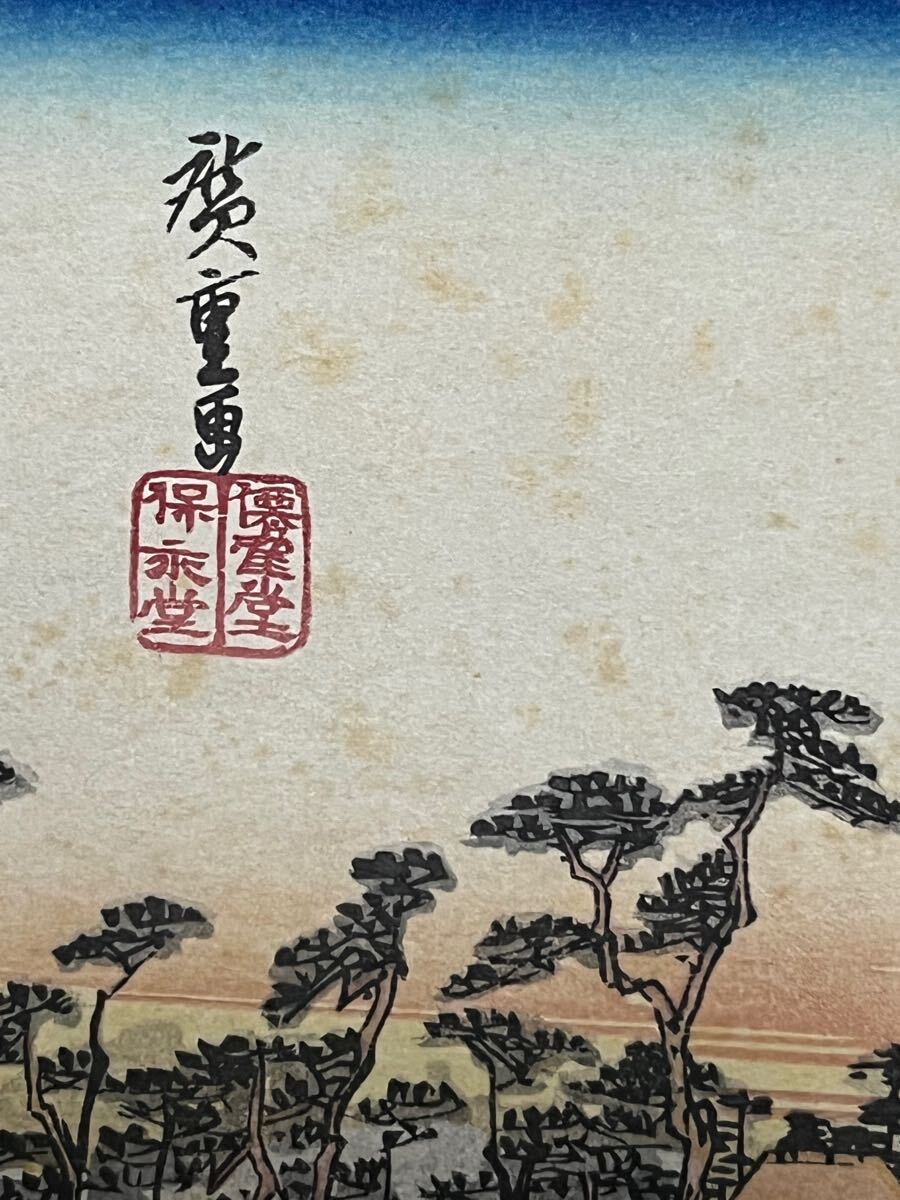 廣重画
僊寉堂
保永堂